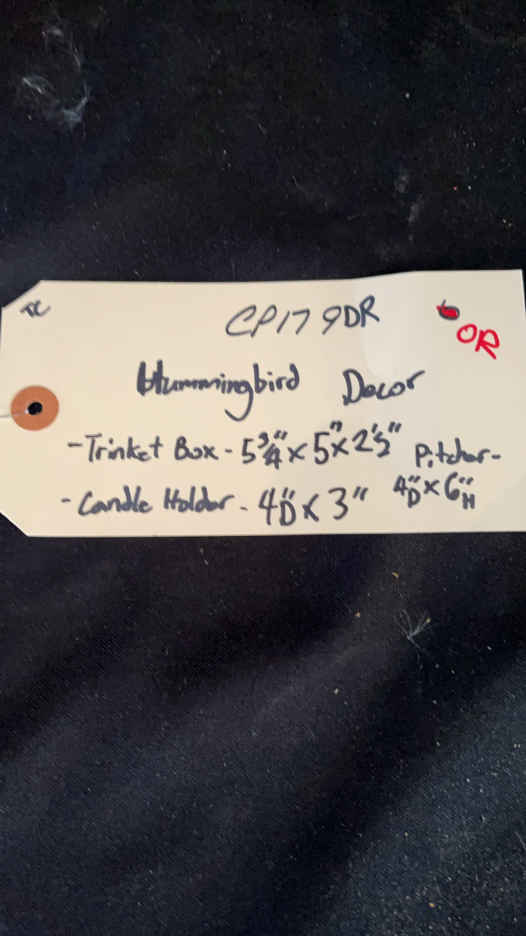 CP179DR
OR
Hummingbird Decor
- Trinket Box - 5 3/4" x 5" x 2 1/2" Pitcher -
- Candle Holder - 4"D x 3" 4"D x 6"H